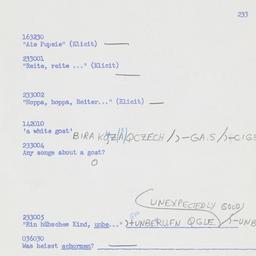 233
163230
"Als Pupele" (Elicit)
233001
"Reite, reite ..." (Elicit)
233002
"Hoppa, hoppa, Reiter..." (Elicit)
142010
'a white goat' BIRA CZECH
233004
Any songs about a goat?
0
UNEXPECTEDLY GOOD
233005
"Ein hübsches Kind, unbe..." UNBERUFN
036030
Was heisst schormen?